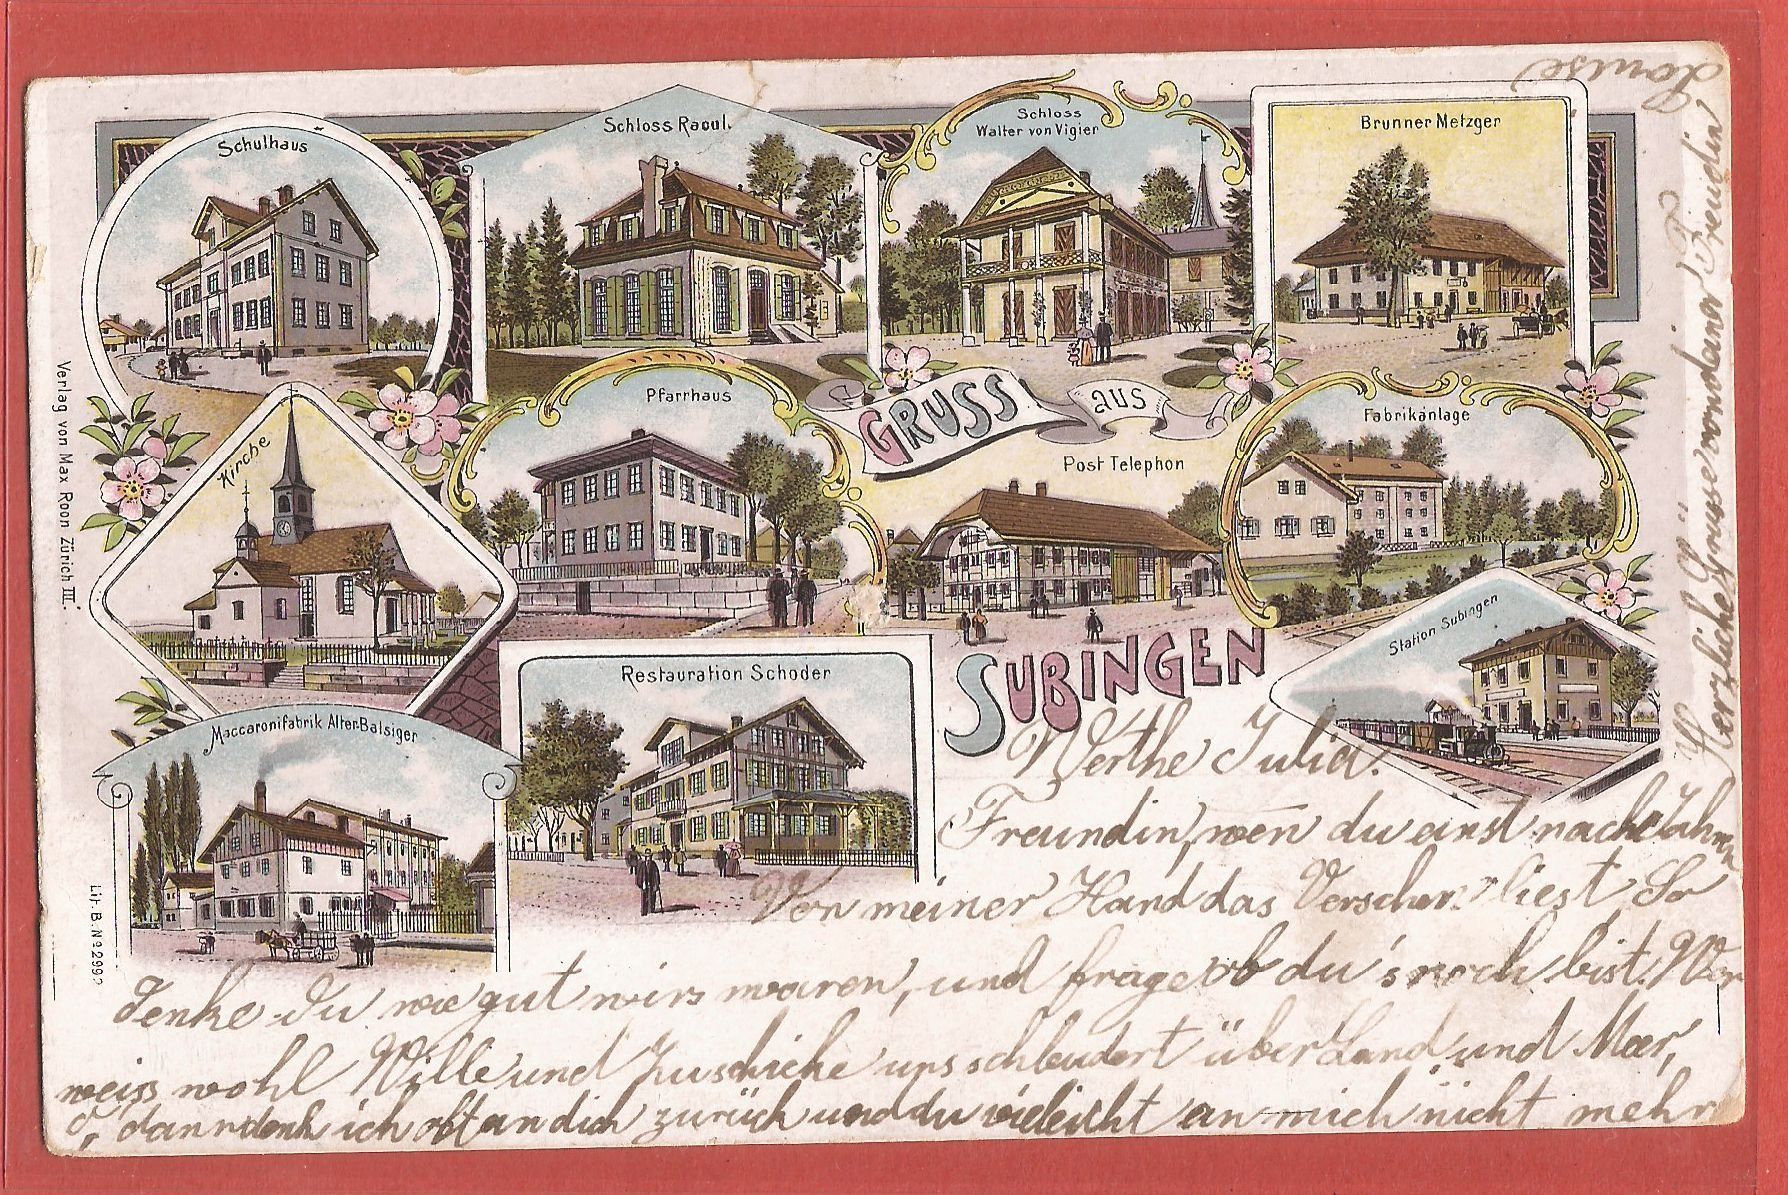 Schulhaus
Schloss Raoul.
Schloss
Walter von Vigier
Brunner Metzger
Kirche
Pfarrhaus
GRUSS aus
Post Telephon
Fabrikanlage
SUBINGEN
Station Subingen
Maccaronifabrik Alter-Balsiger
Restauration Schoder
Verlag von Max Roon Zürich III.
Lit. B. No 2992
Werthe Julia.
Freundin, wen du einst nach Jahren
Von meiner Hand das liest, So
denke du wie gut wirs waren, und frage ob du's noch bist. Wer
weiss wohl Wille und Zuschicke uns schleudert über Land und Meer,
O, dann denk ich oft an dich zurück und du vieleicht an mich nicht mehr
Herzliche Grüsse von deiner Freundin
Louise